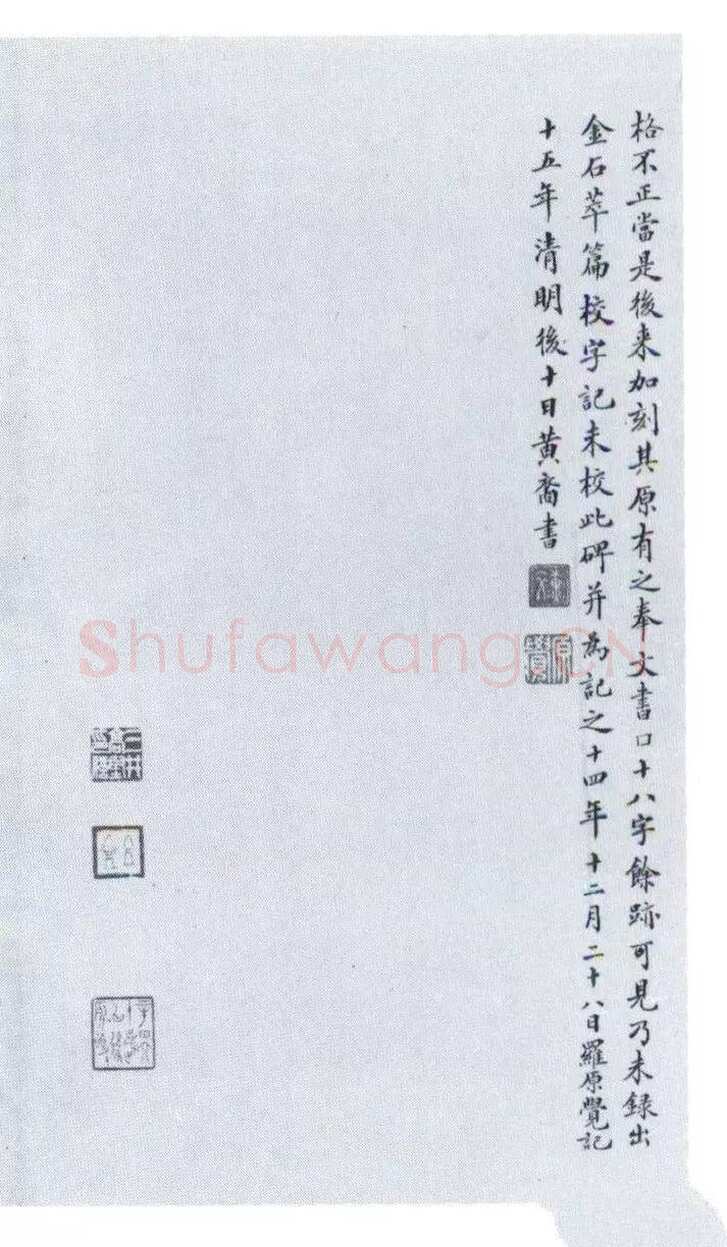 格不正當是後来加刻其原有之奉文書口十八字餘跡可見乃未録出
金石萃篇校字記未校此碑并為記之十四年十二月二十八日羅原覺記
十五年清明後十日黄裔書
Shufawang.CN